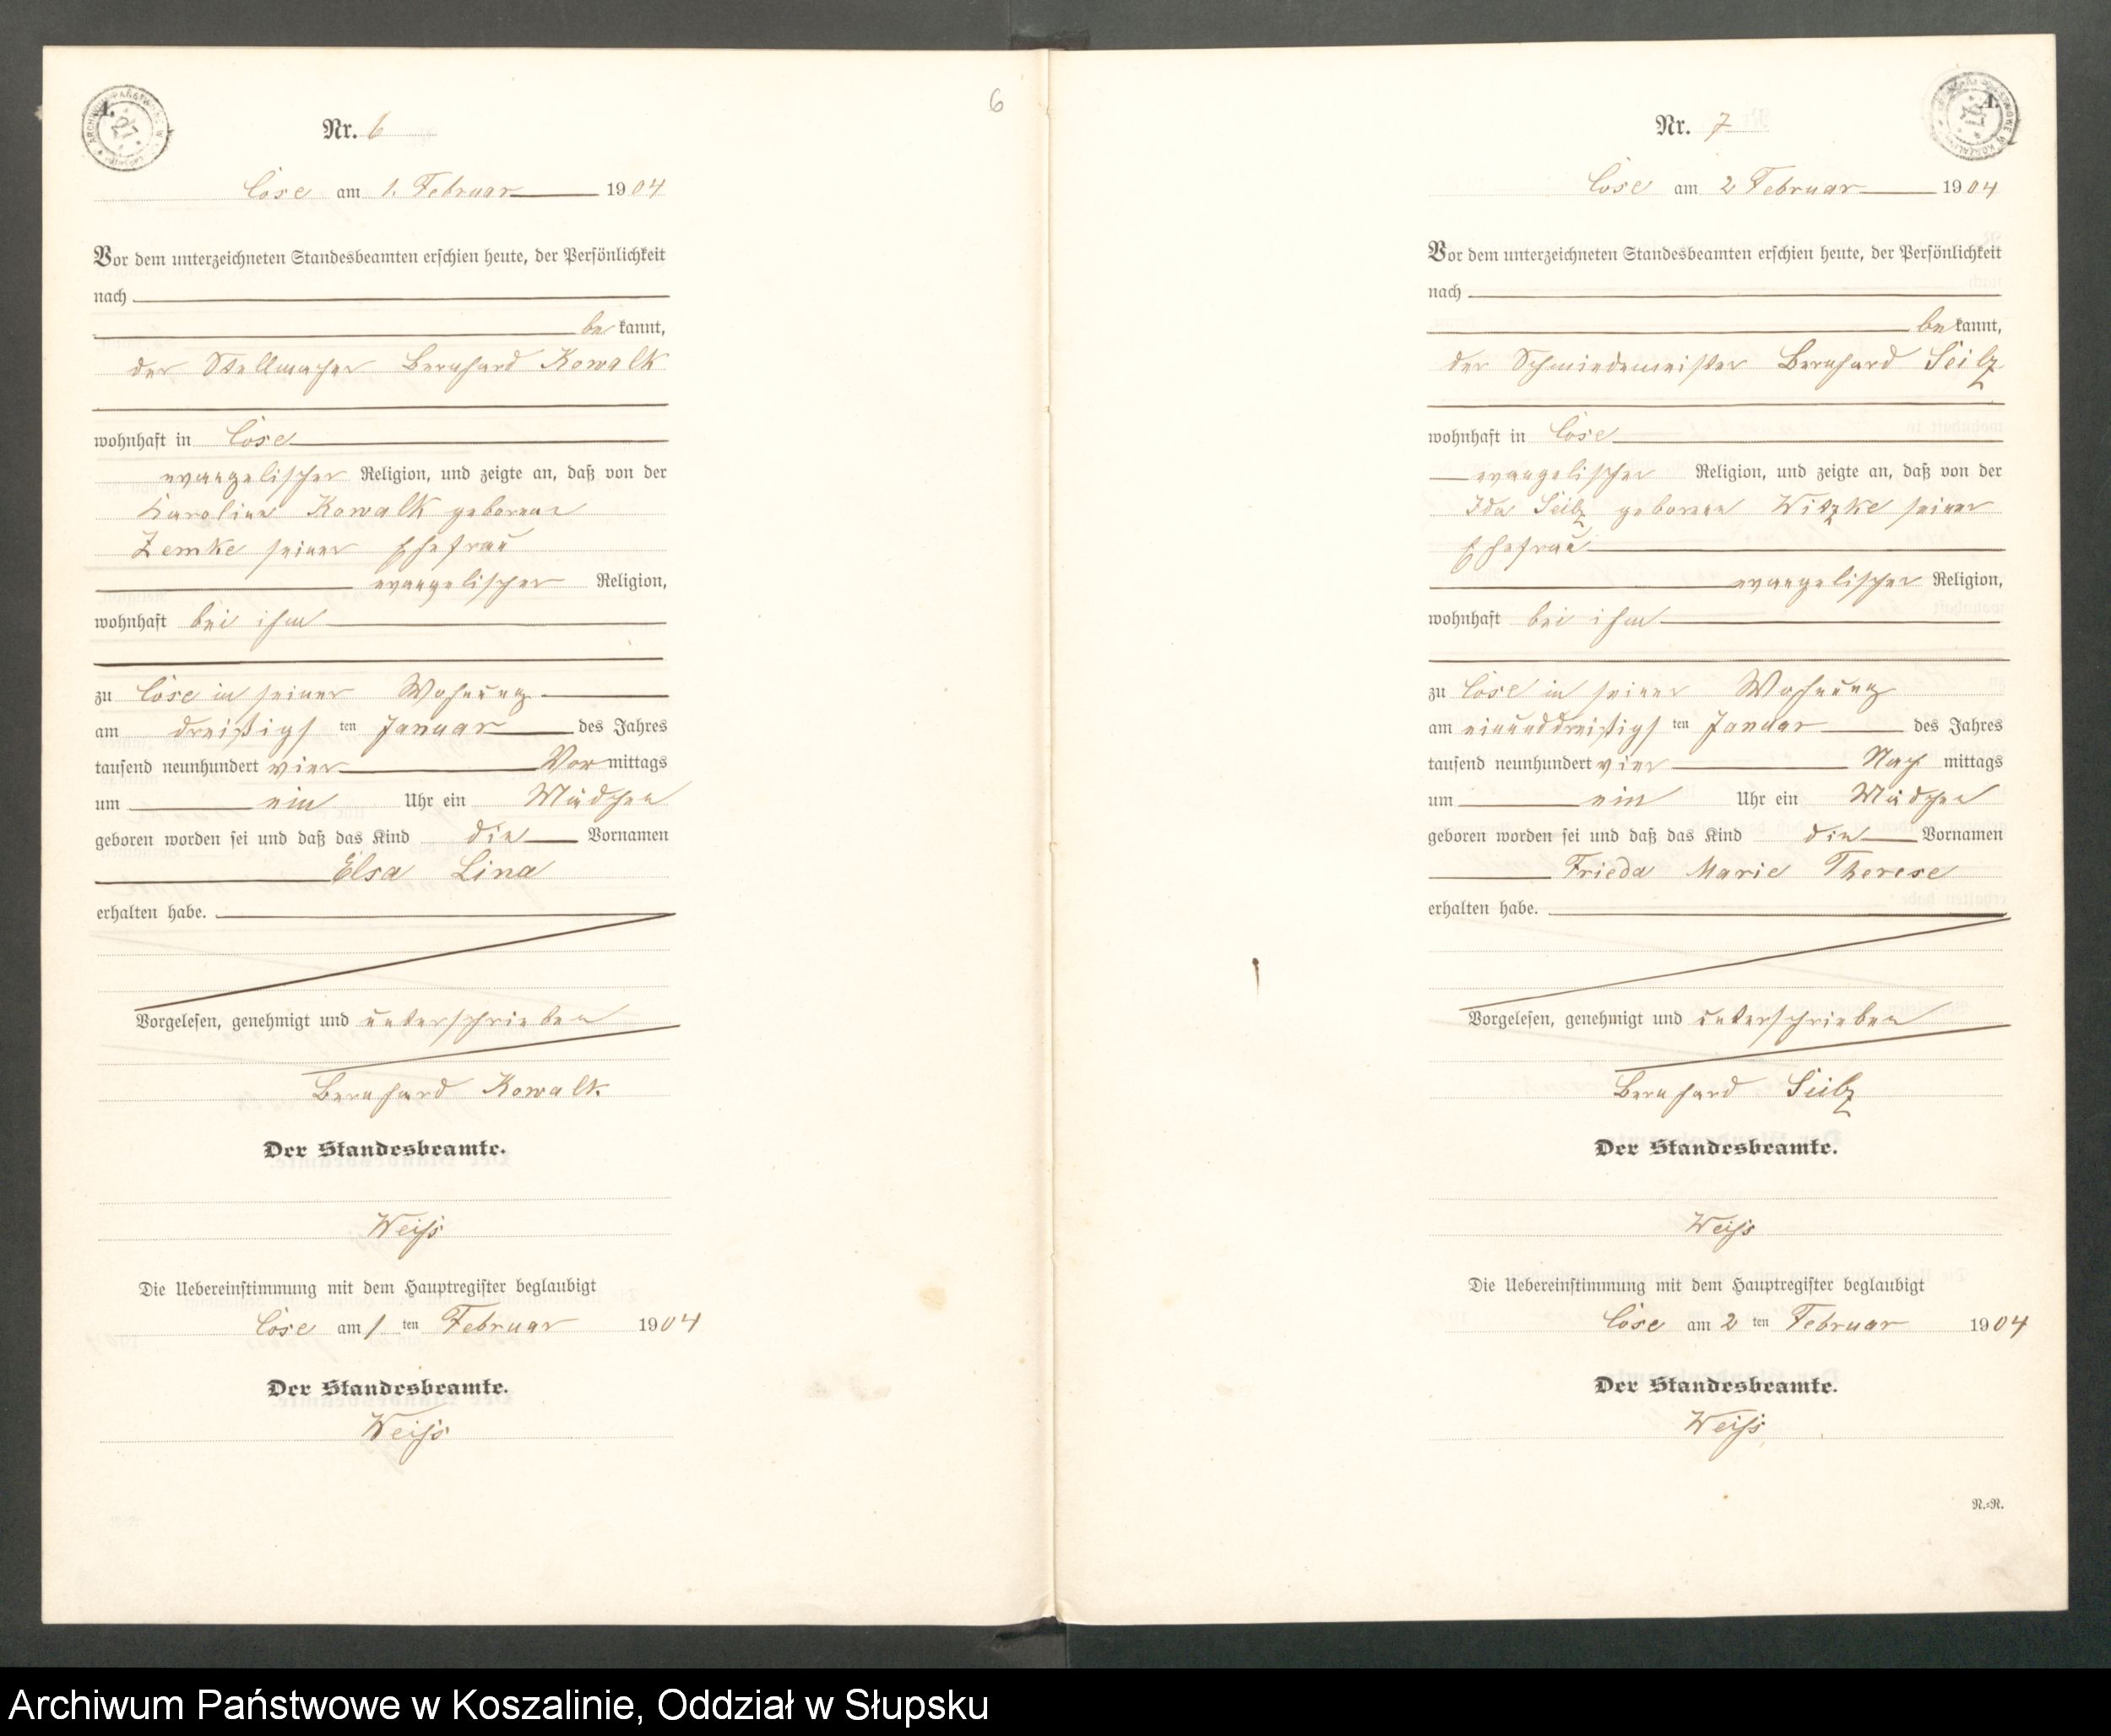 6
Nr. 6
Lose am 1. Februar 1904
Vor dem unterzeichneten Standesbeamten erschien heute, der Persönlichkeit
nach
be kannt,
der Stellmacher Bernhard Kowalk
wohnhaft in Lose
evangelischer Religion, und zeigte an, daß von der
Karoline Kowalk geborene
Zemke seiner Ehefrau
evangelischer Religion,
wohnhaft bei ihm
zu Lose in seiner Wohnung
am dreißigs ten Januar des Jahres
tausend neunhundert vier Vor mittags
um ein Uhr ein Mädchen
geboren worden sei und daß das Kind die Vornamen
Elsa Lina
erhalten habe.
Vorgelesen, genehmigt und unterschrieben
Bernhard Kowalk
Der Standesbeamte.
Weiss
Die Uebereinstimmung mit dem Hauptregister beglaubigt
Lose am 1 ten Februar 1904
Der Standesbeamte.
Weiss
Nr. 7
Lose am 2 Februar 1904
Vor dem unterzeichneten Standesbeamten erschien heute, der Persönlichkeit
nach
be kannt,
der Schmiedemeister Bernhard Seils
wohnhaft in Lose
evangelischer Religion, und zeigte an, daß von der
Ida Seils geborene Witzke seiner
Ehefrau
evangelischer Religion,
wohnhaft bei ihm
zu Lose in seiner Wohnung
am einunddreißigs ten Januar des Jahres
tausend neunhundert vier Nach mittags
um ein Uhr ein Mädchen
geboren worden sei und daß das Kind die Vornamen
Frieda Marie Therese
erhalten habe.
Vorgelesen, genehmigt und unterschrieben
Bernhard Seils
Der Standesbeamte.
Weiss
Die Uebereinstimmung mit dem Hauptregister beglaubigt
Lose am 2 ten Februar 1904
Der Standesbeamte.
Weiss
N.=N.
Archiwum Państwowe w Koszalinie, Oddział w Słupsku